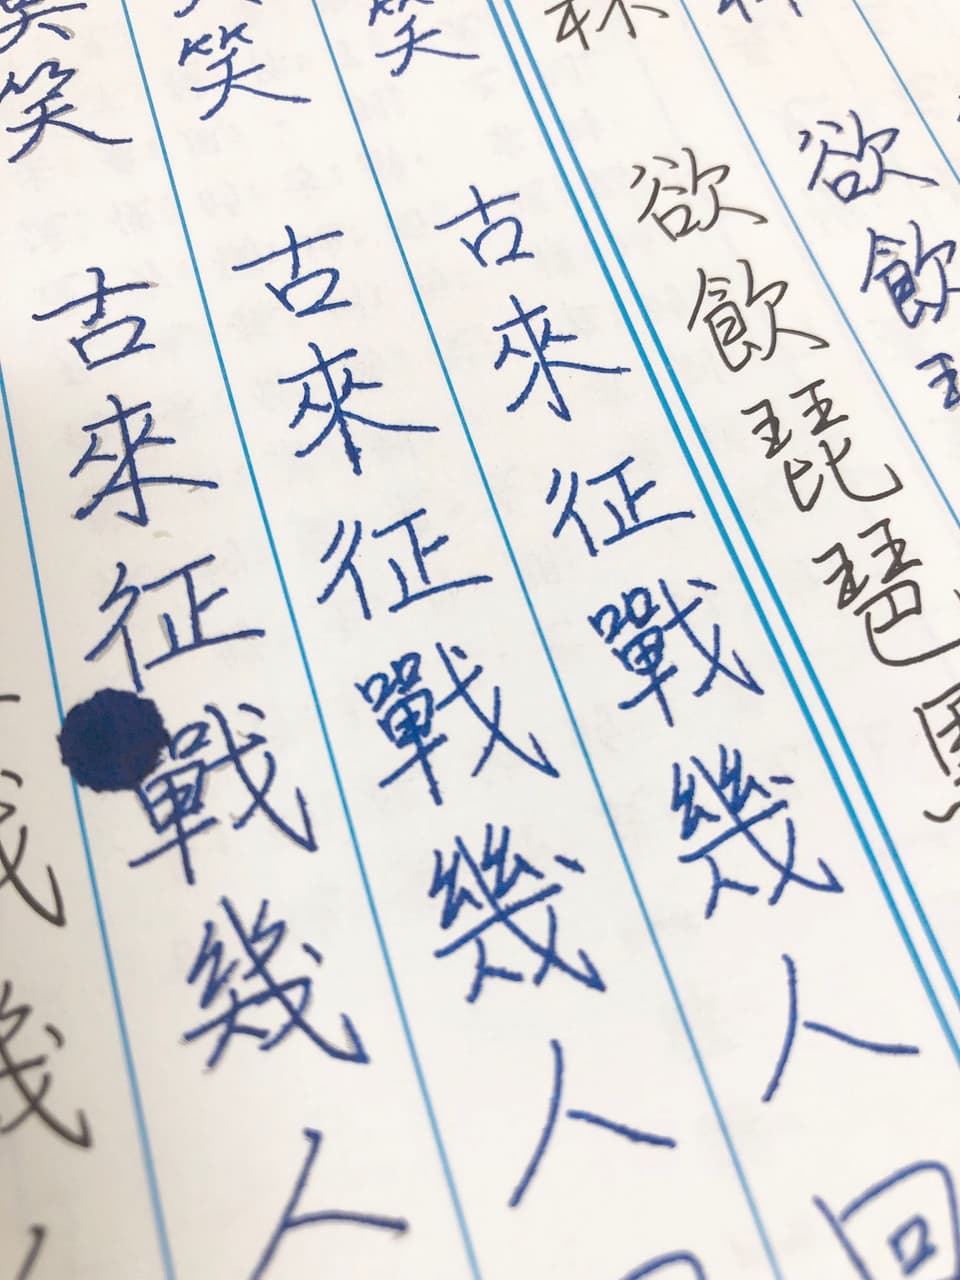 欲飲
欲飲琵琶
笑古來征戰幾人回
笑古來征戰幾人
笑古來征戰幾人